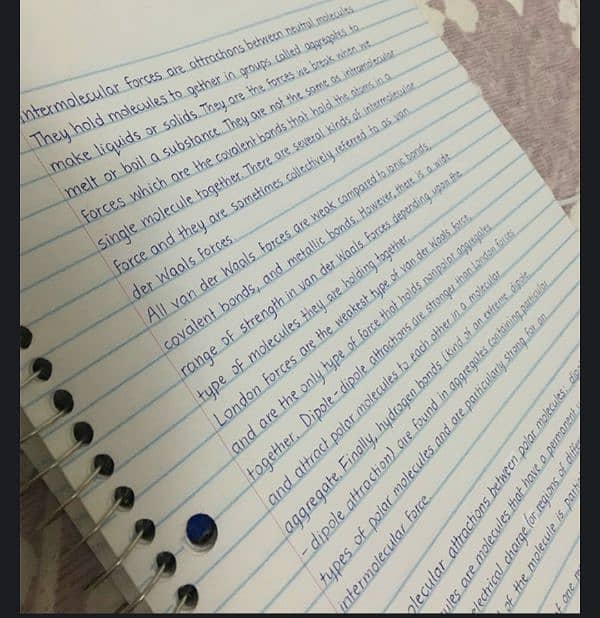 intermolecular forces are attractions between neutral molecules
They hold molecules to gether in groups called aggregates to
make liquids or solids. They are the forces we break when we
melt or boil a substance. They are not the same as intramolecular
forces which are the covalent bonds that hold the atoms in a
single molecule together. There are several kinds of intermolecular
force and they are sometimes collectively referred to as van
der Waals forces
All van der Waals forces are weak compared to ionic bonds,
covalent bonds, and metallic bonds. However, there is a wide
range of strength in van der Waals forces depending upon the
type of molecules they are holding together.
London forces are the weakest type of van der Waals force
and are the only type of force that holds nonpolar aggregates
together. Dipole-dipole attractions are stronger than London forces
and attract polar molecules to each other in a molecular
aggregate. Finally, hydrogen bonds (kind of an extreme dipole
- dipole attraction) are found in aggregates containing particular
types of polar molecules and are particularly strong for an
intermolecular force
olecular attractions between polar molecules; dip
ules are molecules that have a permanent
electrical charge for regions of diffe
of the molecule is parti
of one m